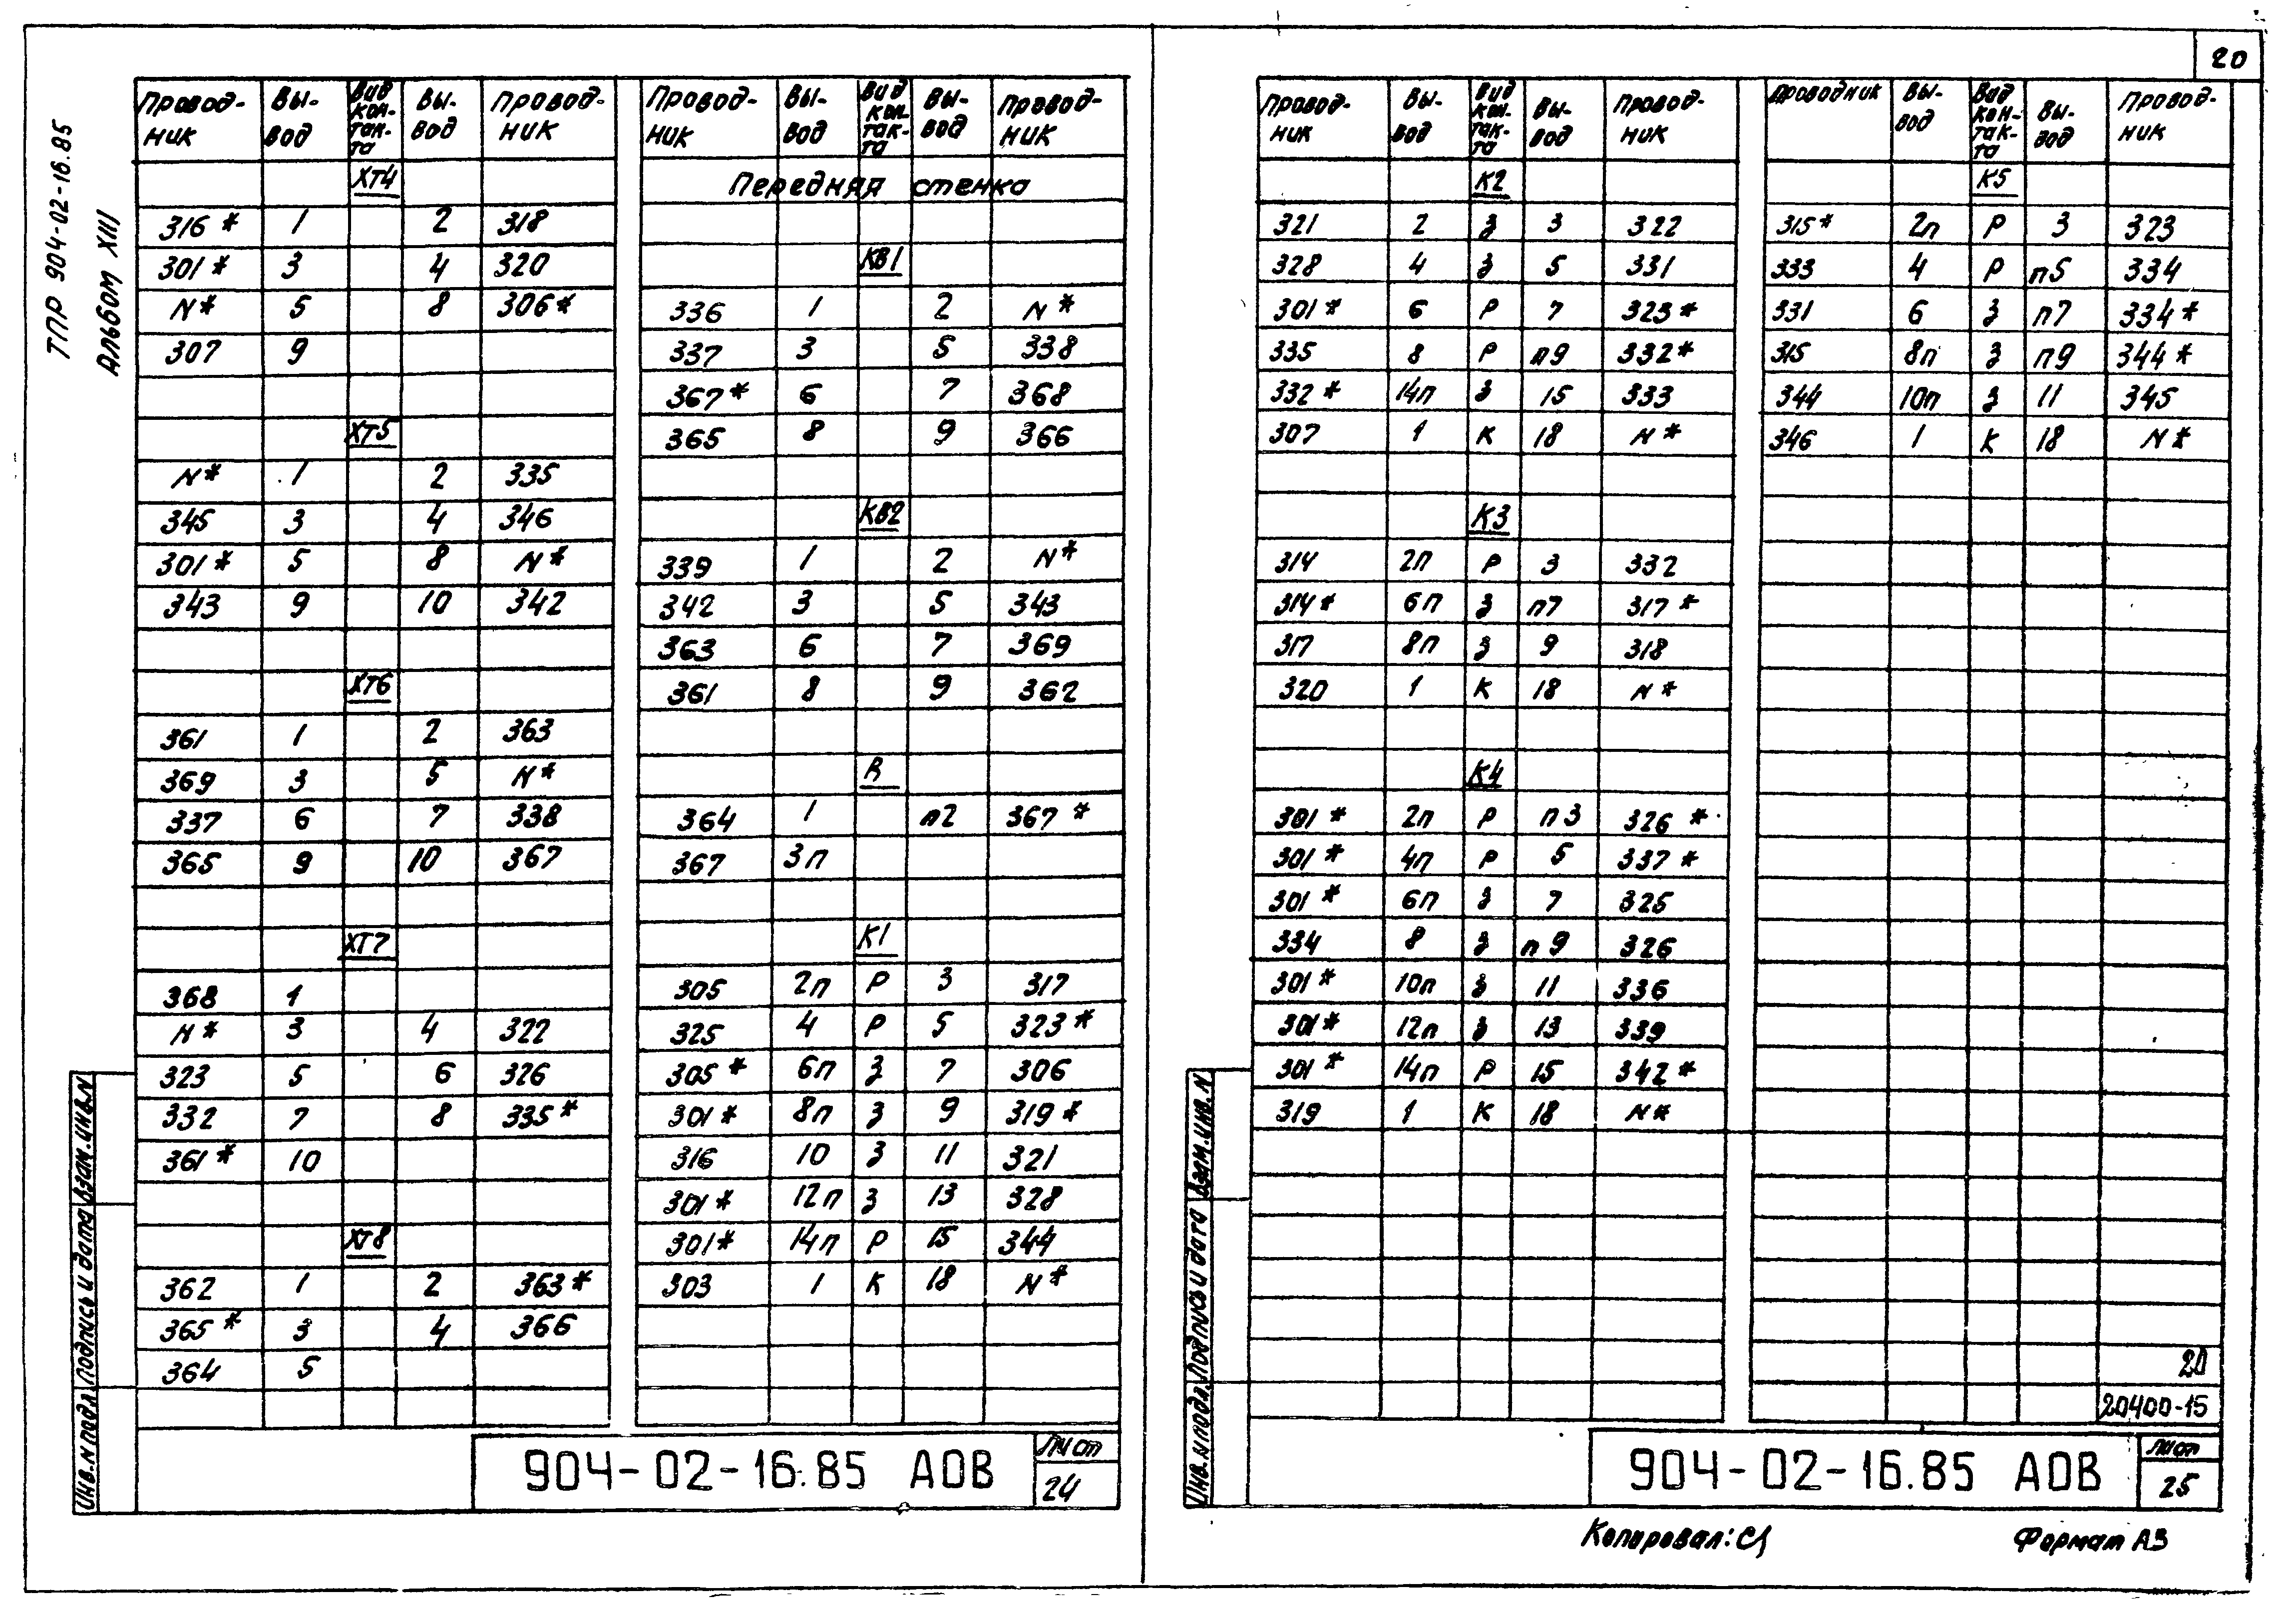 20
ТПР 904-02-16.85
Альбом XIII
Провод-ник Вы-вод Вид кон-так-та Вы-вод Провод-ник
ХТ4
316* 1 2 318
301* 3 4 320
N* 5 8 306*
307 9
ХТ5
N* 1 2 335
345 3 4 346
301* 5 8 N*
343 9 10 342
ХТ6
361 1 2 363
369 3 5 N*
337 6 7 338
365 9 10 367
ХТ7
368 1
N* 3 4 322
323 5 6 326
332 7 8 335*
361* 10
ХТ8
362 1 2 363*
365* 3 4 366
364 5
Провод-ник Вы-вод Вид кон-так-та Вы-вод Провод-ник
Передняя стенка
КВ1
336 1 2 N*
337 3 5 338
367* 6 7 368
365 8 9 366
КВ2
339 1 2 N*
342 3 5 343
363 6 7 369
361 8 9 362
R
364 1 п2 367*
367 3п
К1
305 2п Р 3 317
325 4 Р 5 323*
305* 6п З 7 306
301* 8п З 9 319*
316 10 З 11 321
301* 12п З 13 328
301* 14п Р 15 344
303 1 К 18 N*
Инв.N подл. Подпись и дата Взам.инв.N
904-02-16.85 АОВ
Лист
24
Провод-ник Вы-вод Вид кон-так-та Вы-вод Провод-ник
К2
321 2 З 3 322
328 4 З 5 331
301* 6 Р 7 323*
335 8 Р п9 332*
332* 14п З 15 333
307 1 К 18 N*
К3
314 2п Р 3 332
314* 6п З п7 317*
317 8п З 9 318
320 1 К 18 N*
К4
301* 2п Р п3 326*
301* 4п Р 5 337*
301* 6п З 7 325
334 8 З п9 326
301* 10п З 11 336
301* 12п З 13 339
301* 14п Р 15 342*
319 1 К 18 N*
Проводник Вы-вод Вид кон-так-та Вы-вод Провод-ник
К5
315* 2п Р 3 323
333 4 Р п5 334
331 6 З п7 334*
315 8п З п9 344*
344 10п З 11 345
346 1 К 18 N*
20
20400-15
Инв.N подл. Подпись и дата Взам.инв.N
904-02-16.85 АОВ
Лист
25
Копировал:
Формат А3